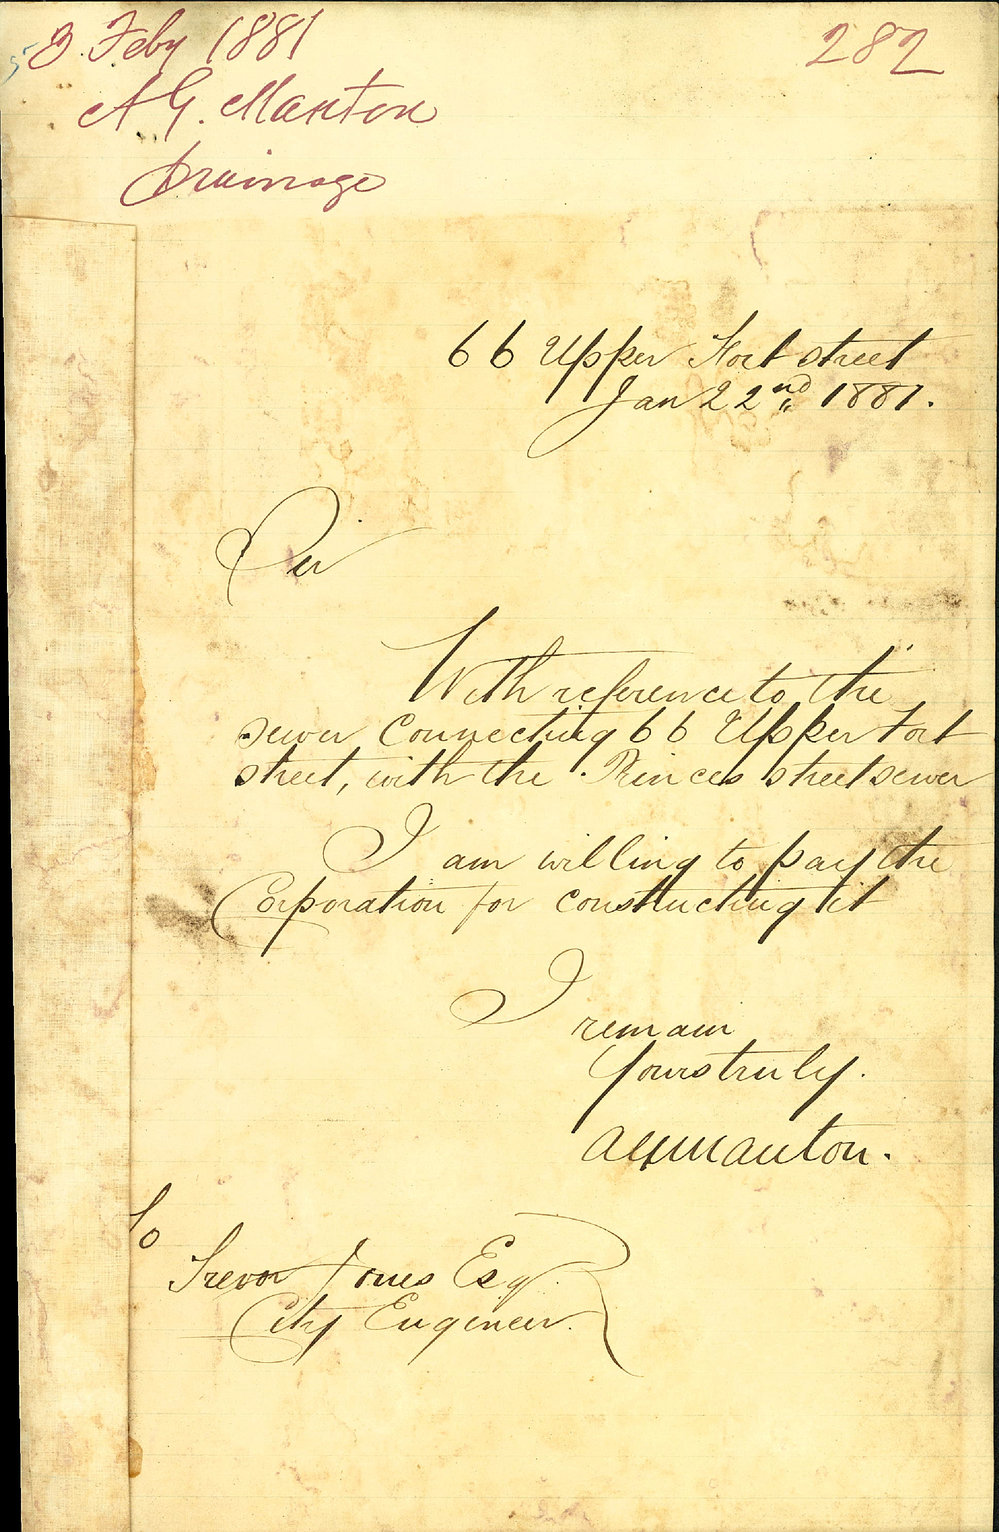 3 Feby 1881
282
A G. Manton
Drainage
66 Upper Fort street
Jan 22nd 1881.
Sir
With reference to the
sewer Connecting 66 Upper Fort
street, with the Princes street sewer
I am willing to pay the
Corporation for constructing it
I
remain
Yours truly.
AGManton.
To
Trevor Jones Esq.
City Engineer.